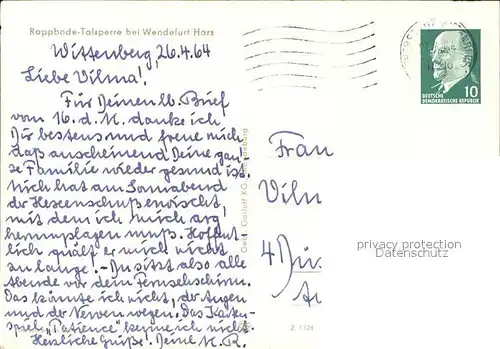 Rappbode-Talsperre bei Wendefurt Harz
Wittenberg, 26.4.64
Liebe Vilma!
Für Deinen lb. Brief
vom 16. d. M. danke ich
Dir bestens und freue mich
daß anscheinend Deine gan-
ze Familie wieder gesund ist.
Mich hat am Sonnabend
der Hexenschuß erwischt,
mit dem ich mich arg
herumplagen muß. Hoffent-
lich quält er mich nicht
zu lange! - Du sitzt also alle
Abende vor dem Fernsehschirm.
Das könnte ich nicht, der Augen
und der Nerven wegen. Das Karten-
spiel „Patience" kenne ich nicht.
Herzliche Grüße! Deine M. R.
Frau
Viln
4
DEUTSCHE
DEMOKRATISCHE REPUBLIK
10
privacy protection
Datenschutz